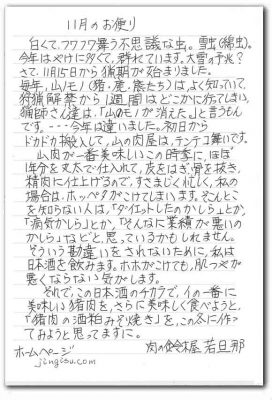 11月のお便り
白くて、フワフワ舞う不思議な虫。雪虫(綿虫)。
今年はやけに多くて、群れています。大雪の予兆?
さて、11月15日から猟期が始まりました。
毎年、山ノモノ(猪・鹿・熊たち)はよく知っていて、
狩猟解禁から1週間はどこかに行ってしまい、
猟師さん達は「山のモノが消えた」と言うもん
です。・・・今年は違いました。初日から
ドカドカ搬入して、山の肉屋は、テンテコ舞いです。
山肉が一番美味しいこの時季に、ほぼ
1年分を丈太で仕入れて、皮をはぎ、骨を抜き、
精肉に仕上げるので、すさまじく忙しく、私の
場合は、ホッペタがこけてしまいます。そんなこと
を知らない人は、「ダイエットしたのかしら」とか、
「病気かしら」とか、「そんなに業績が悪いの
かしら」などと、思っているかもしれません。
そういう勘違いをされないために、私は
日本酒を飲みます。ホホがこけても、肌つやが
悪くならない気がします。
それで、この日本酒のチカラで、イの一番に
美味しい猪肉を、さらに美味しく食べようと、
「猪肉の酒粕みそ焼き」を、この冬に作っ
ておようと思ってますに。
肉の鈴木屋 若旦那
ホームページ
jingisu.com